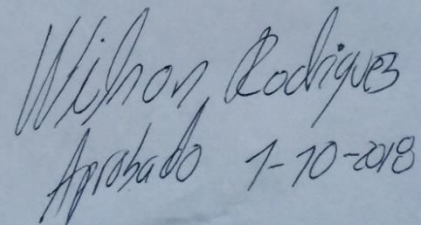 Wilson Rodriguez
Aprobado 1-10-2018